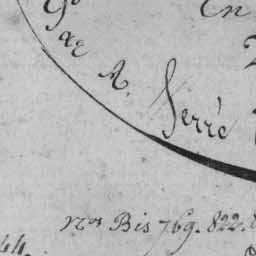 En
Par A. Serré
nos Bis 769. 822.
44